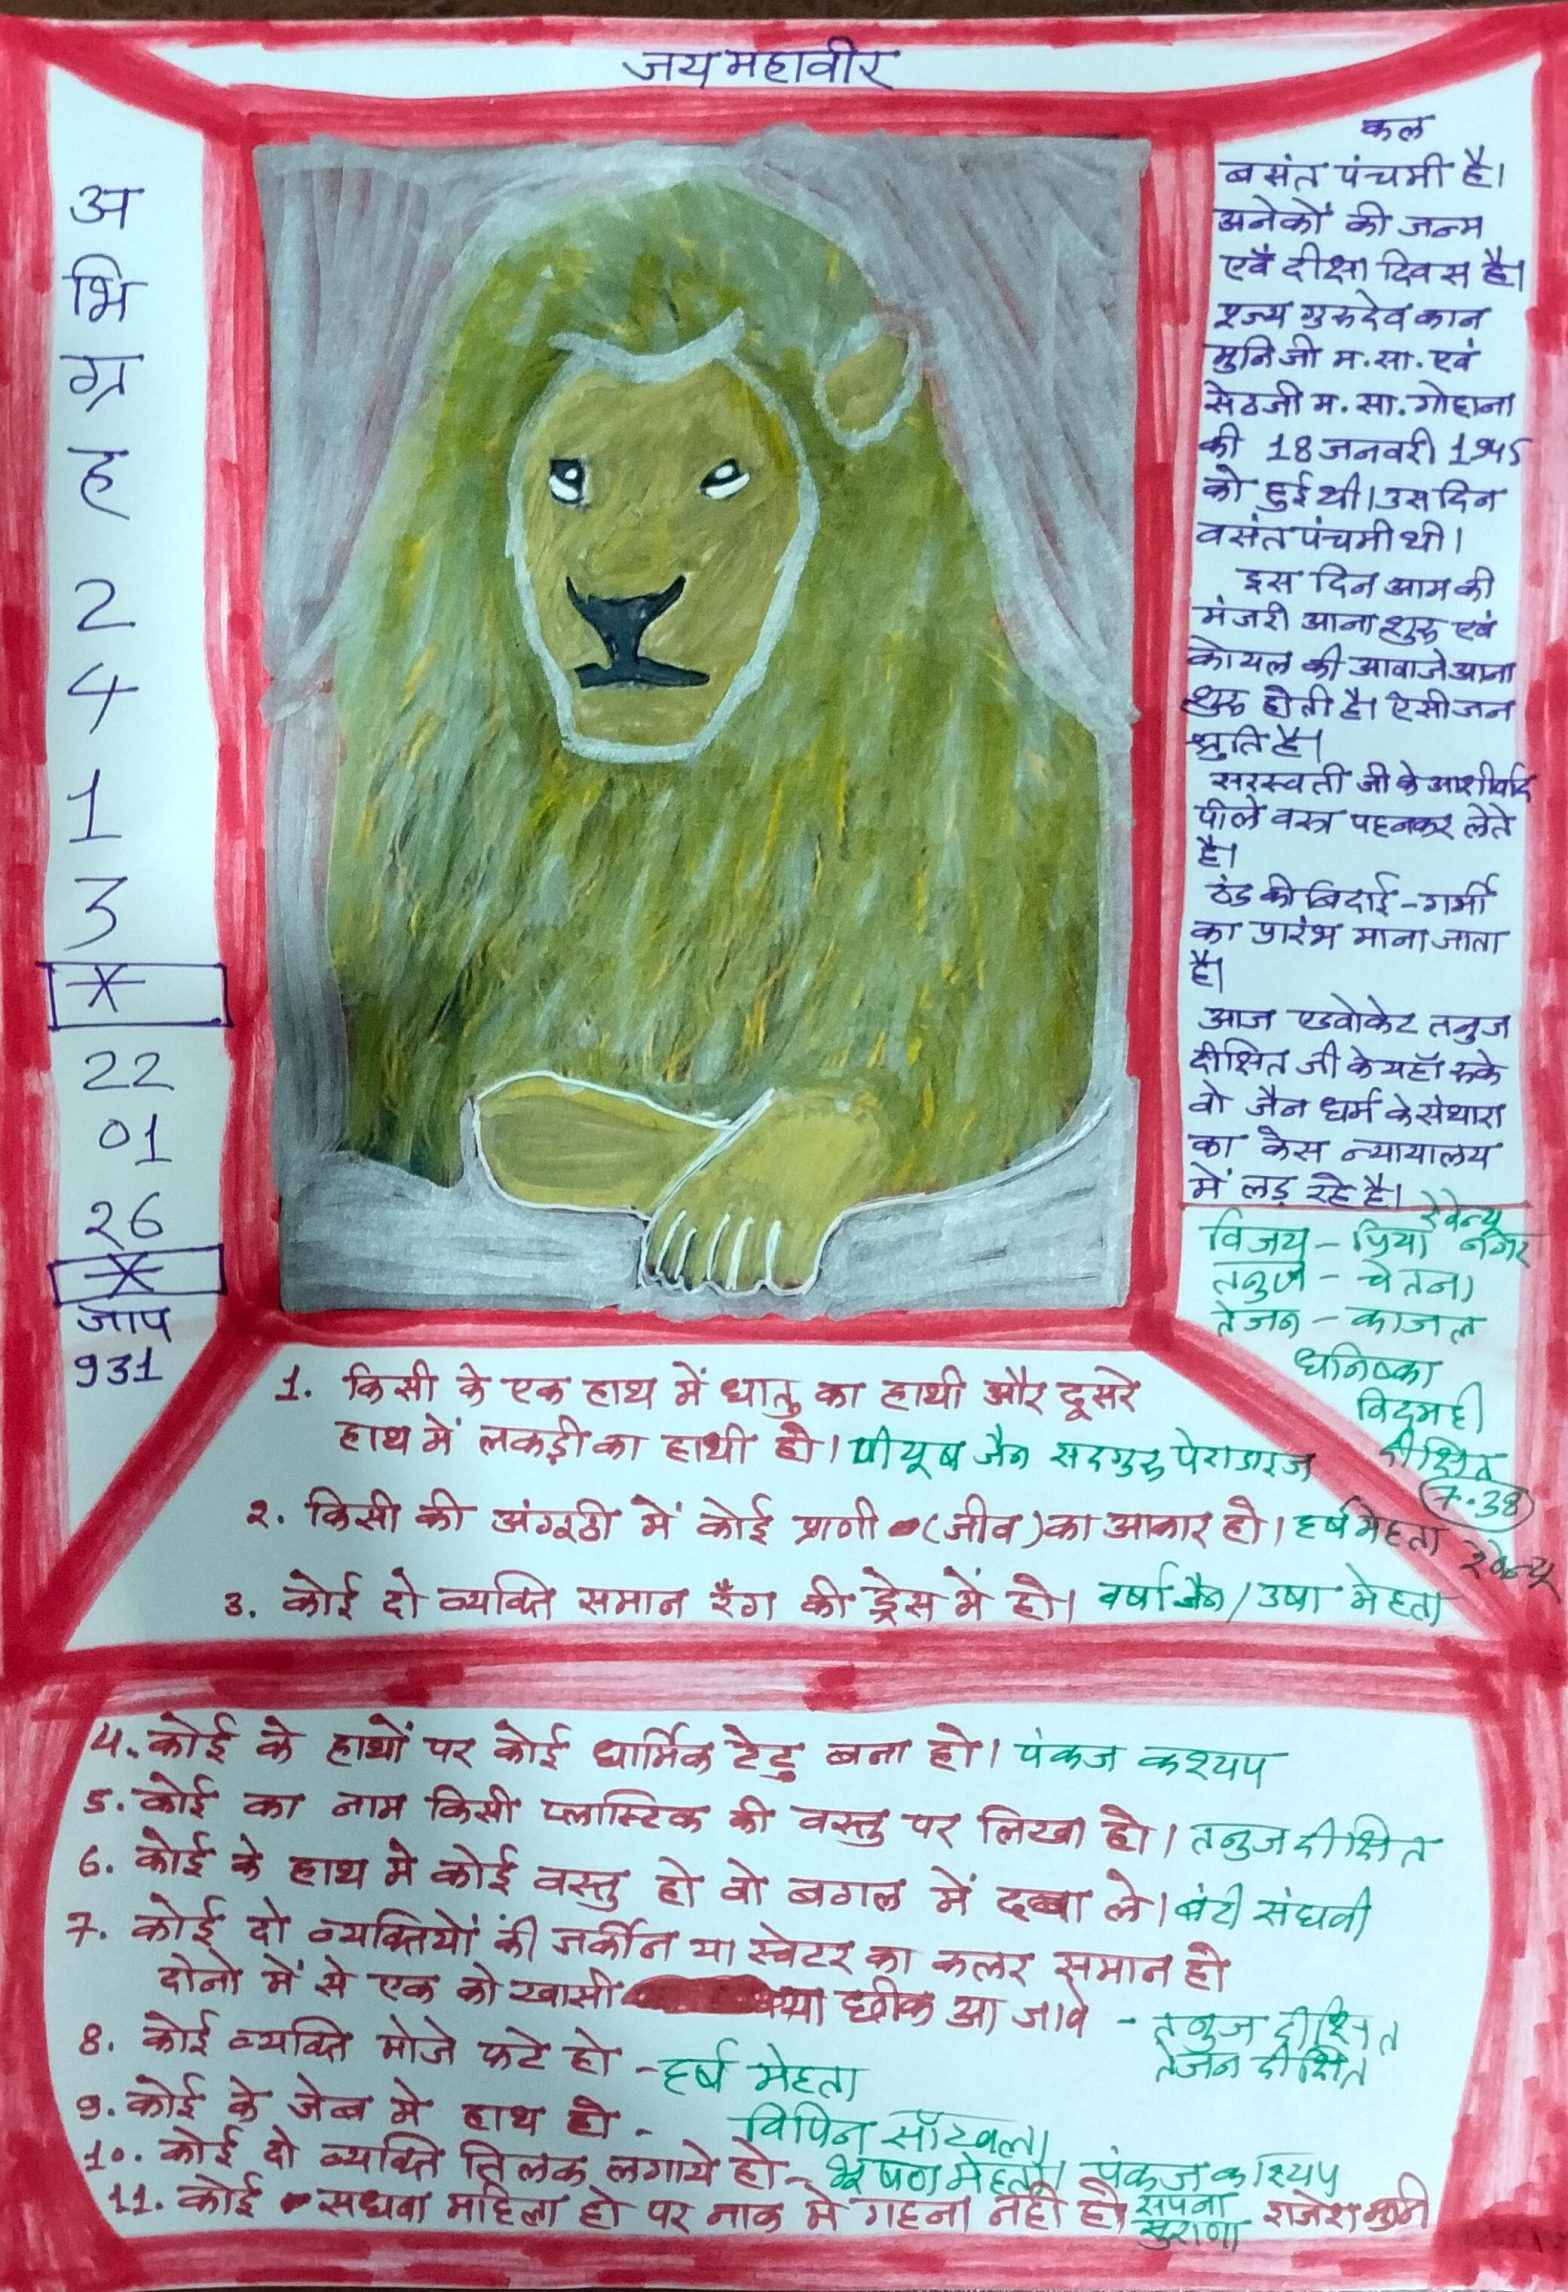 जय महावीर
अ
भि
ग्र
ह
2
4
1
3
*
22
01
26
*
जाप
931
कल
बसंत पंचमी है।
अनेकों की जन्म
एवं दीक्षा दिवस है।
पूज्य गुरुदेव कान
मुनि जी म.सा. एवं
सेठजी म.सा. गोहाना
की 18 जनवरी 1945
को हुई थी। उस दिन
वसंत पंचमी थी।
इस दिन आम की
मंजरी आना शुरु एवं
कोयल की आवाजे आना
शुरु होती है। ऐसी जन
श्रुति है।
सरस्वती जी के आशीर्वाद
पीले वस्त्र पहनकर लेते
है।
ठंड की बिदाई - गर्मी
का प्रारंभ माना जाता
है।
आज एडवोकेट तनुज
दीक्षित जी के यहाँ रुके
वो जैन धर्म के संथारा
का केस न्यायालय
में लड़ रहे है।
विजय - प्रिया रेवेन्यू नगर
तनुज - चेतना
तेजन - काजल
धनिष्का
विदमही
दीक्षित
7.38
1. किसी के एक हाथ में धातु का हाथी और दूसरे
हाथ में लकड़ी का हाथी हो। पीयूष जैन सदगुरु पेराडाइज
2. किसी की अंगूठी में कोई प्राणी (जीव) का आकार हो। हर्ष मेहता रेवेन्यू
3. कोई दो व्यक्ति समान रँग की ड्रेस में हो। वर्षा जैन / उषा मेहता
4. कोई के हाथों पर कोई धार्मिक टेटु बना हो। पंकज कश्यप
5. कोई का नाम किसी प्लास्टिक की वस्तु पर लिखा हो। तनुज दीक्षित
6. कोई के हाथ मे कोई वस्तु हो वो बगल में दबा ले। बंटी संघवी
7. कोई दो व्यक्तियों की जर्कीन या स्वेटर का कलर समान हो
दोनो में से एक को खासी या छींक आ जावे - तनुज दीक्षित
तेजन दीक्षित
8. कोई व्यक्ति मोजे फटे हो - हर्ष मेहता
9. कोई के जेब मे हाथ हो - विपिन सॉखला
10. कोई दो व्यक्ति तिलक लगाये हो - भूषण मेहता। पंकज कश्यप
11. कोई सधवा महिला हो पर नाक मे गहना नही हो। सपना सुराणा राजेश मुनि